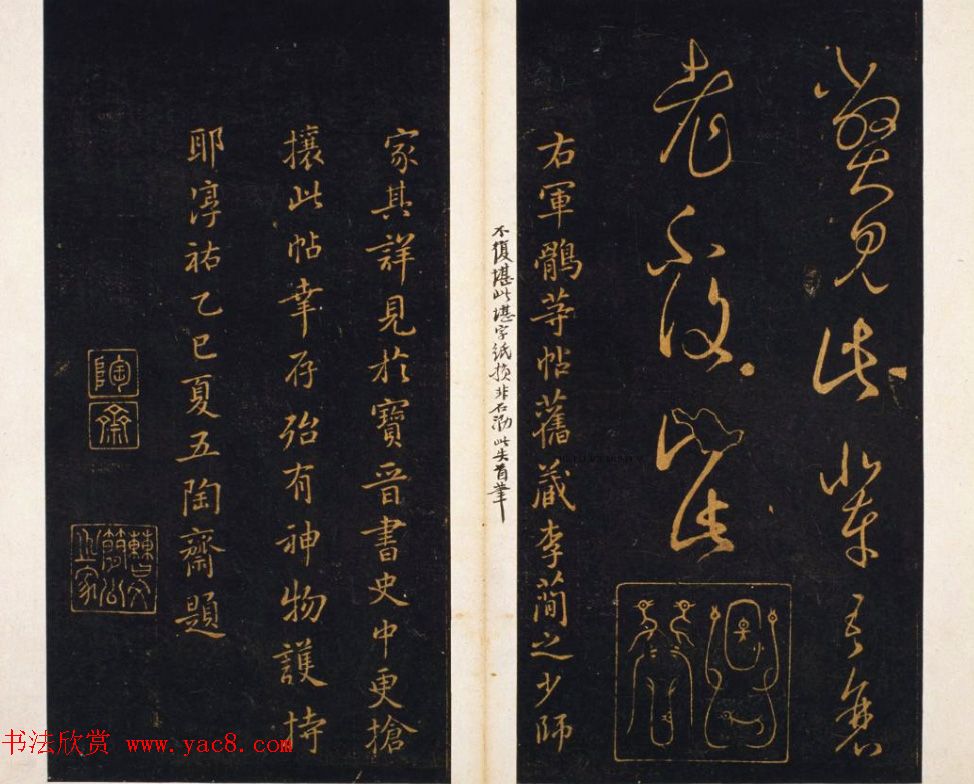 弊見此輩吾衰
老不復堪此
右軍鶻等帖舊藏李蕳之少師
不復堪此堪字紙損非石泐此失首筆
家其詳見於寶晉書史中更搶
攘此帖幸存殆有神物護持
耶淳祐乙巳夏五陶齋題
陶齋
书法欣赏 www.yac8.com